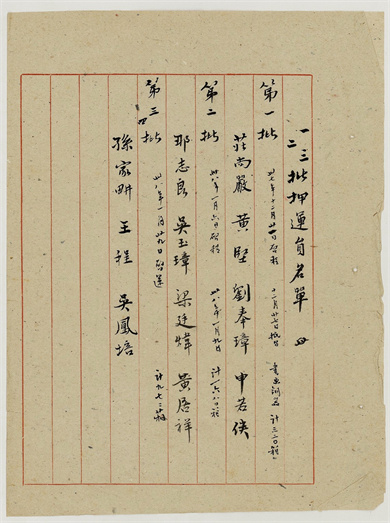 一二三批押運員名單
第一批 卅七年十二月廿一日啓程 十二月廿七抵台 計三二〇箱
莊尚嚴 黃堅 劉奉璋 申若俠
第二批 卅八年一月六日啓程 卅八年一月九日 計一六八〇箱
那志良 吳玉璋 梁廷煒 黃居祥
第三批 卅八年一月廿九日啓運 計九七二箱
孫家畊 王程 吳鳳培